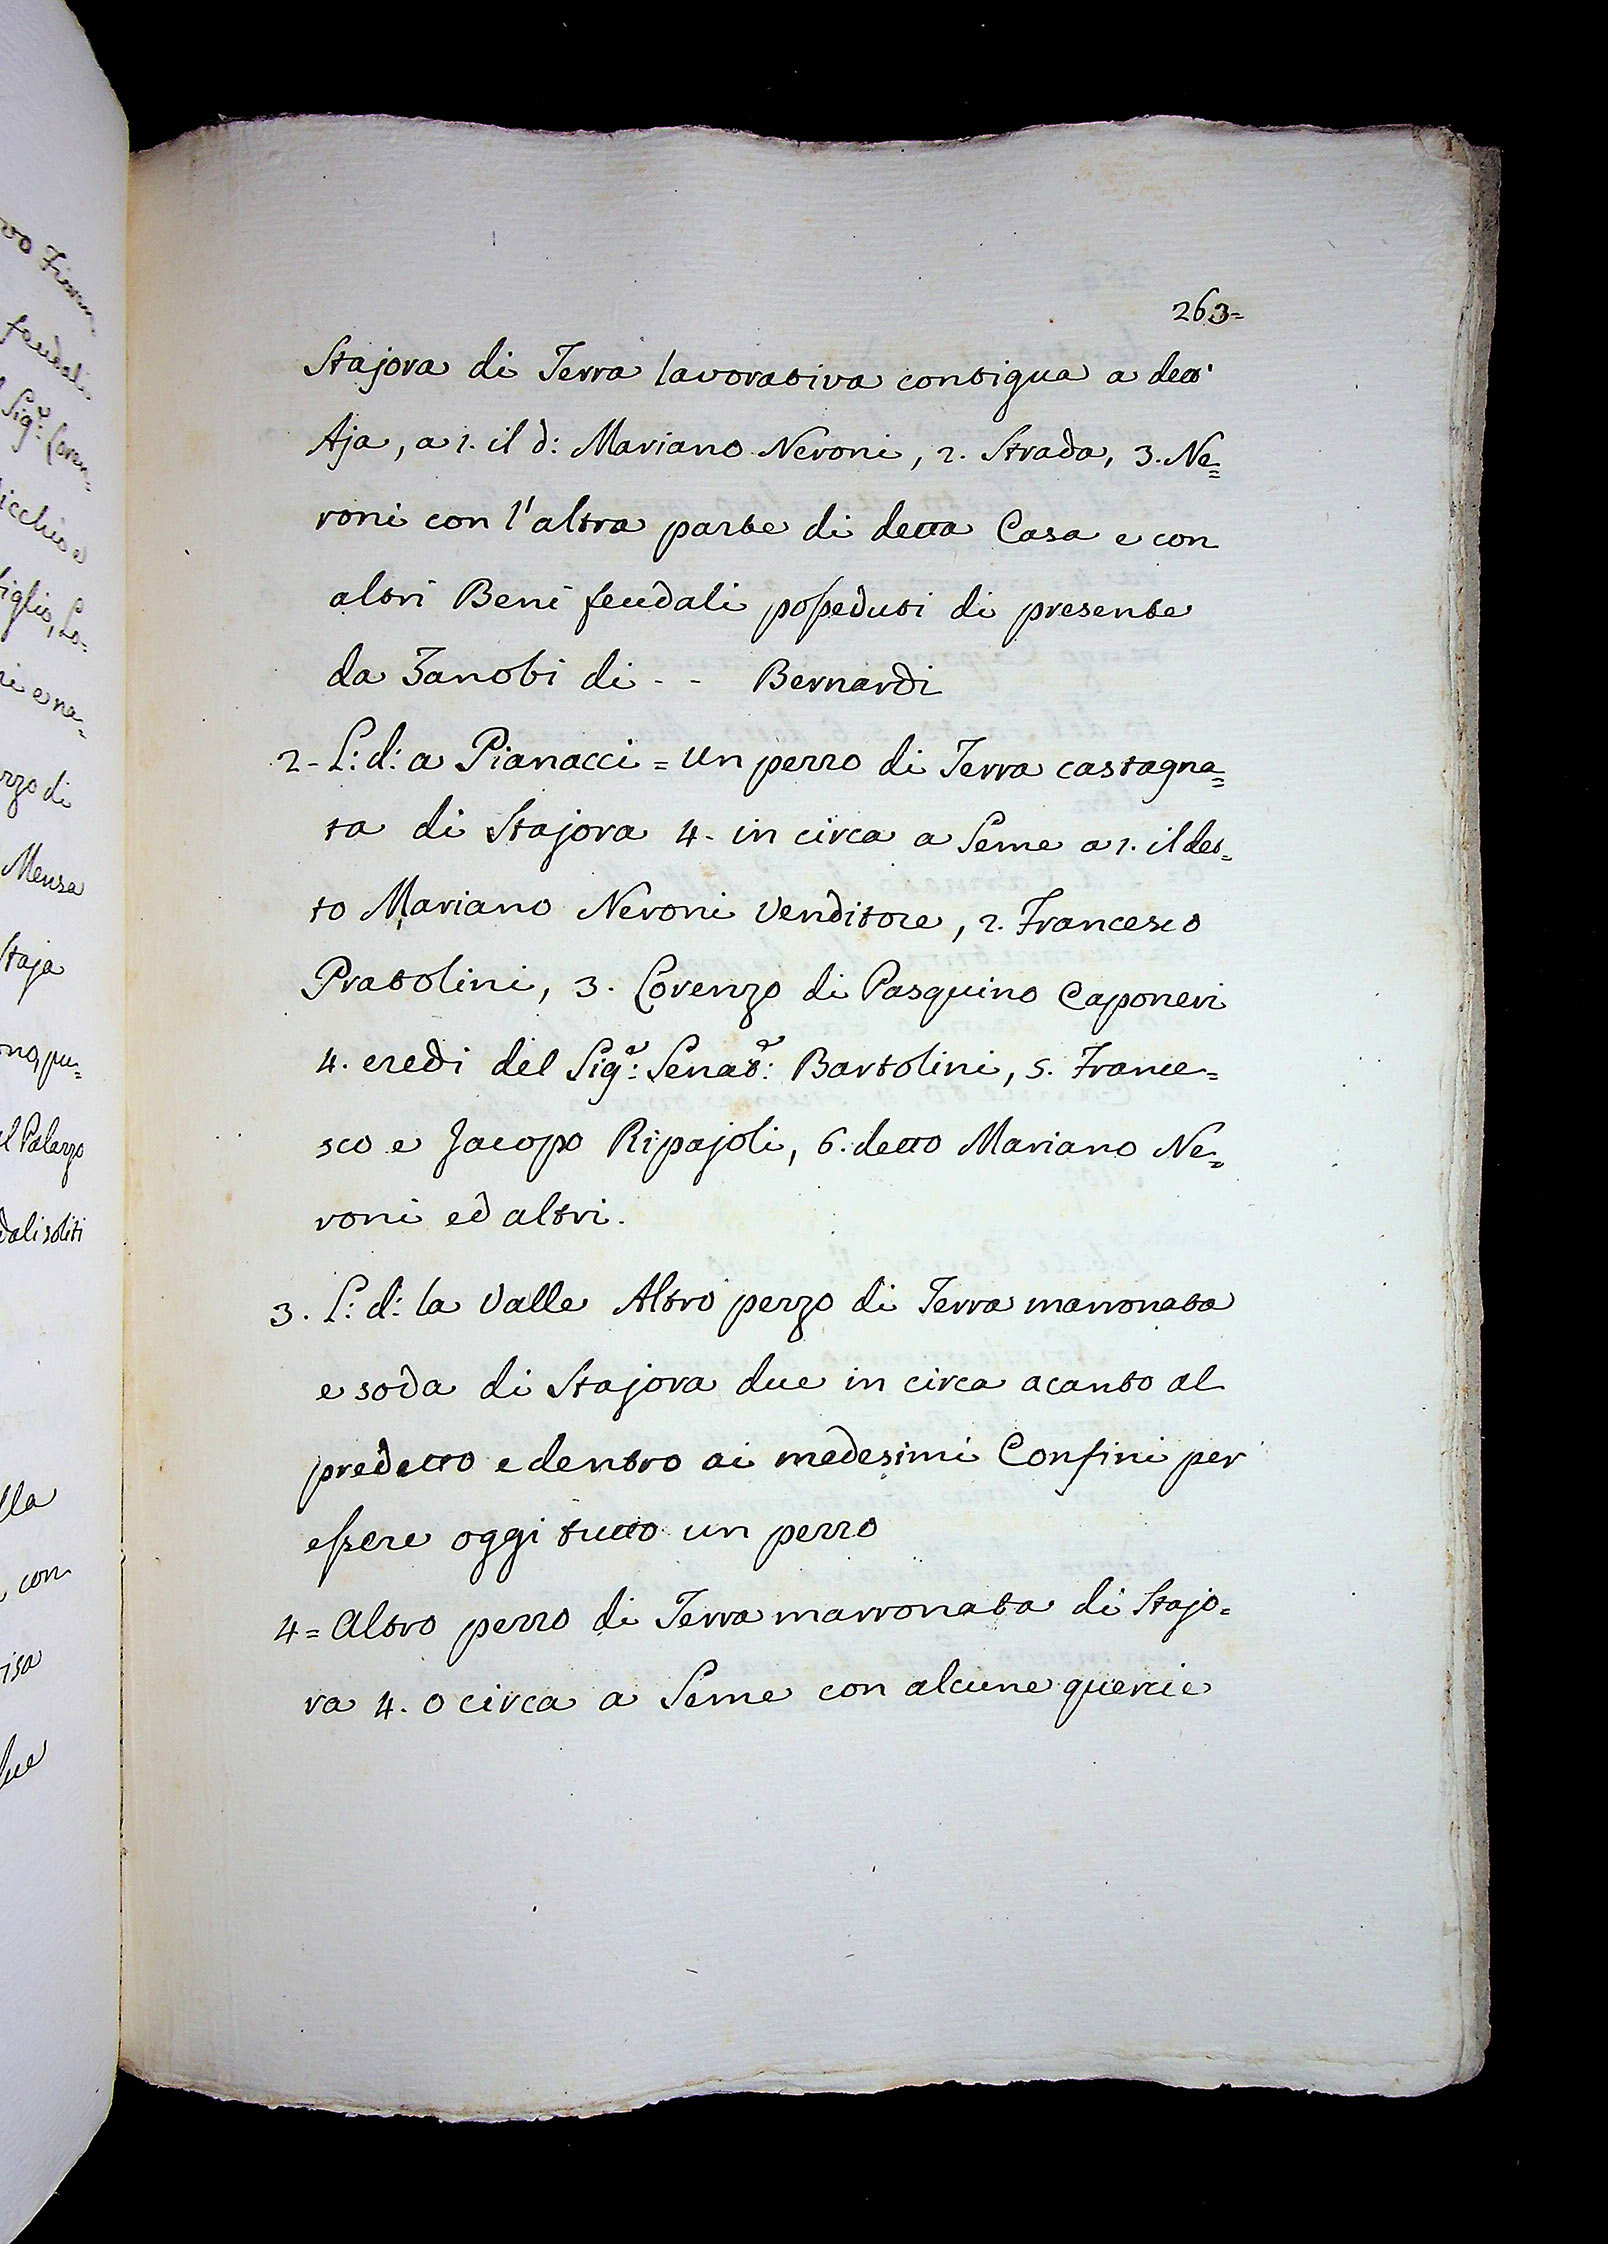 263=
Stajora di Terra lavorativa contigua a dett'
Aja, a 1. il d: Mariano Neroni, 2. Strada, 3. Ne=
roni con l'altra parte di detta Casa e con
altri Beni feudali posseduti di presente
da Zanobi di - - Bernardi
2 - L: d: a Pianacci = un pezzo di Terra castagna=
ta di Stajora 4. in circa a Seme a 1. il det=
to Mariano Neroni Venditore, 2. Francesco
Pratolini, 3. Lorenzo di Pasquino Caponeri
4. eredi del Sig.e: Senat.e: Bartolini, 5. France=
sco e Jacopo Ripajoli, 6. detto Mariano Ne=
roni ed altri.
3. L: d: la Valle Altro pezzo di Terra marronata
e soda di Stajora due in circa acanto al
predetto e dentro ai medesimi Confini per
essere oggi tutto un pezzo
4 = Altro pezzo di Terra marronata di Stajo=
ra 4. o circa a Seme con alcune quercie